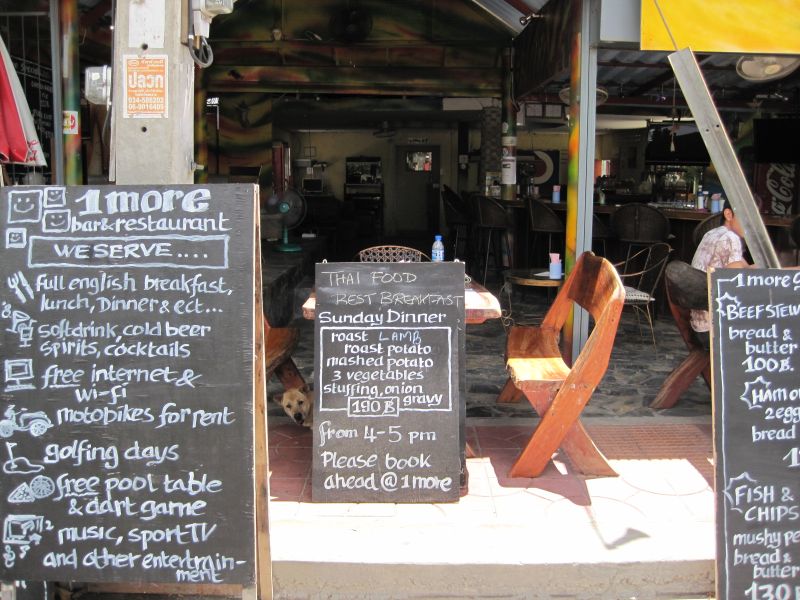 ปลวก
034-586203
1more
bar&restaurant
WE SERVE....
full english breakfast,
lunch, Dinner & ect...
& softdrink, cold beer
spirits, cocktails
free internet &
wi-fi
motobikes for rent
golfing days
free pool table
& dart game
music, sport TV
and other entertrain-
ment
THAI FOOD
BEST BREAKFAST
Sunday Dinner
roast LAMB
roast potato
mashed potato
3 vegetables
stuffing, onion
190 ฿ gravy
from 4-5 pm
Please book
ahead @ 1more
Coca-Cola
1more
BEEF STEW
bread &
butter
100 ฿
HAM
2 egg
bread
FISH &
CHIPS
mushy pe
bread &
butter
130 ฿